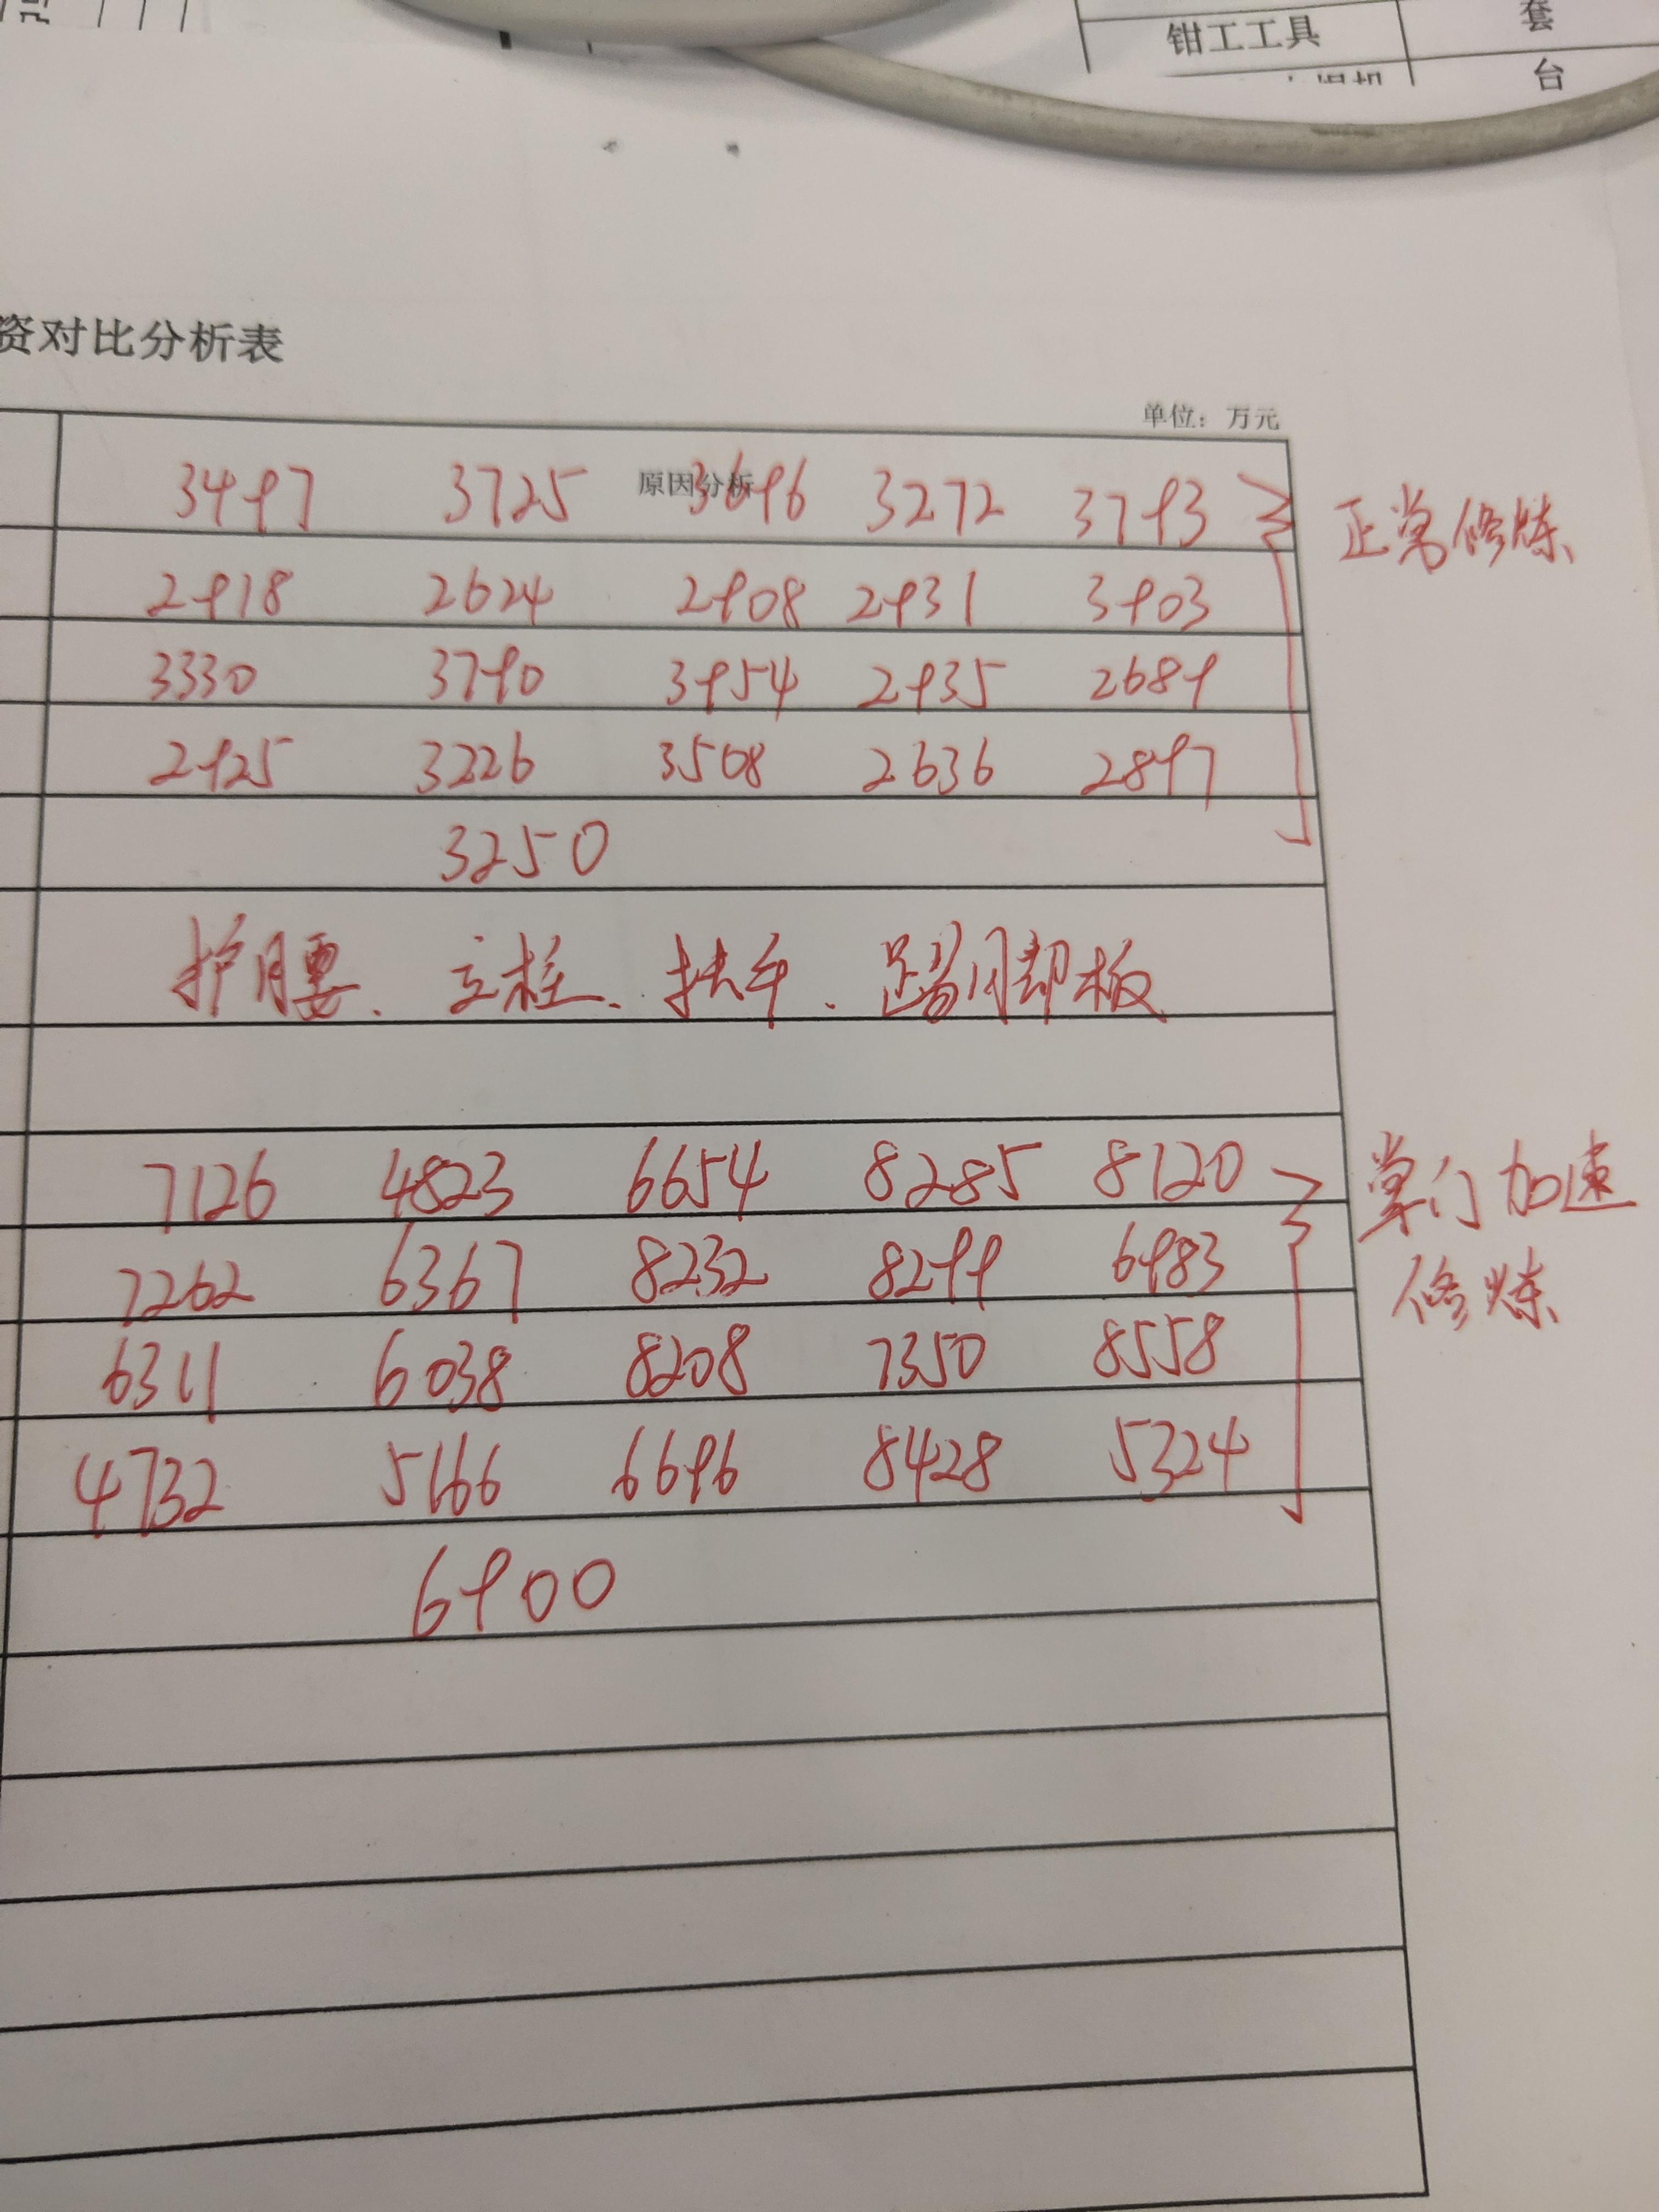 钳工工具 套
台
资对比分析表
单位：万元
原因分析
3497 3725 3696 3272 3793 正常修炼
2918 2624 2908 2931 3903
3330 3790 3954 2935 2689
2925 3226 3508 2636 2897
3250
护腰、立柱、扶手、踢脚板
7126 4823 6654 8285 8120 掌门加速
7262 6367 8232 8299 6983 修炼
6311 6038 8208 7350 8558
4732 5166 6696 8428 5324
6900